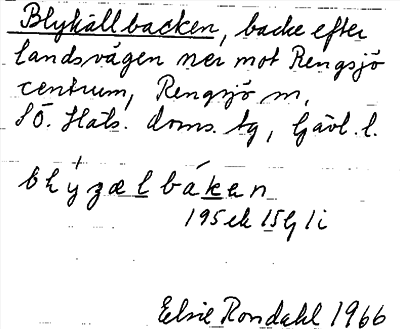 Blykällbacken, backe efter
landsvägen ner mot Rengsjö
centrum, Rengsjö sn,
SÖ. Häls. doms. tg, Gävl. l.
195 ek 15 G 1 i
Elsie Rondahl 1966